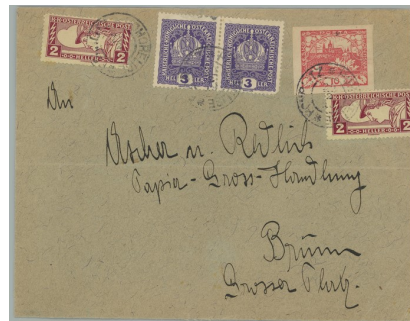 2 KAIS. KOENIGL. OESTERREICHISCHE POST 2
HELLER
KAISERLICHE KÖNIGLICHE ÖSTERREICHISCHE POST
3 HELLER
KAISERLICHE KÖNIGLICHE ÖSTERREICHISCHE POST
3 HELLER
2 OESTERREICHISCHE POST 2
HELLER
An
Ascher u. Redlich
Papier-Gross-Handlung
Brünn
Grosser Platz.